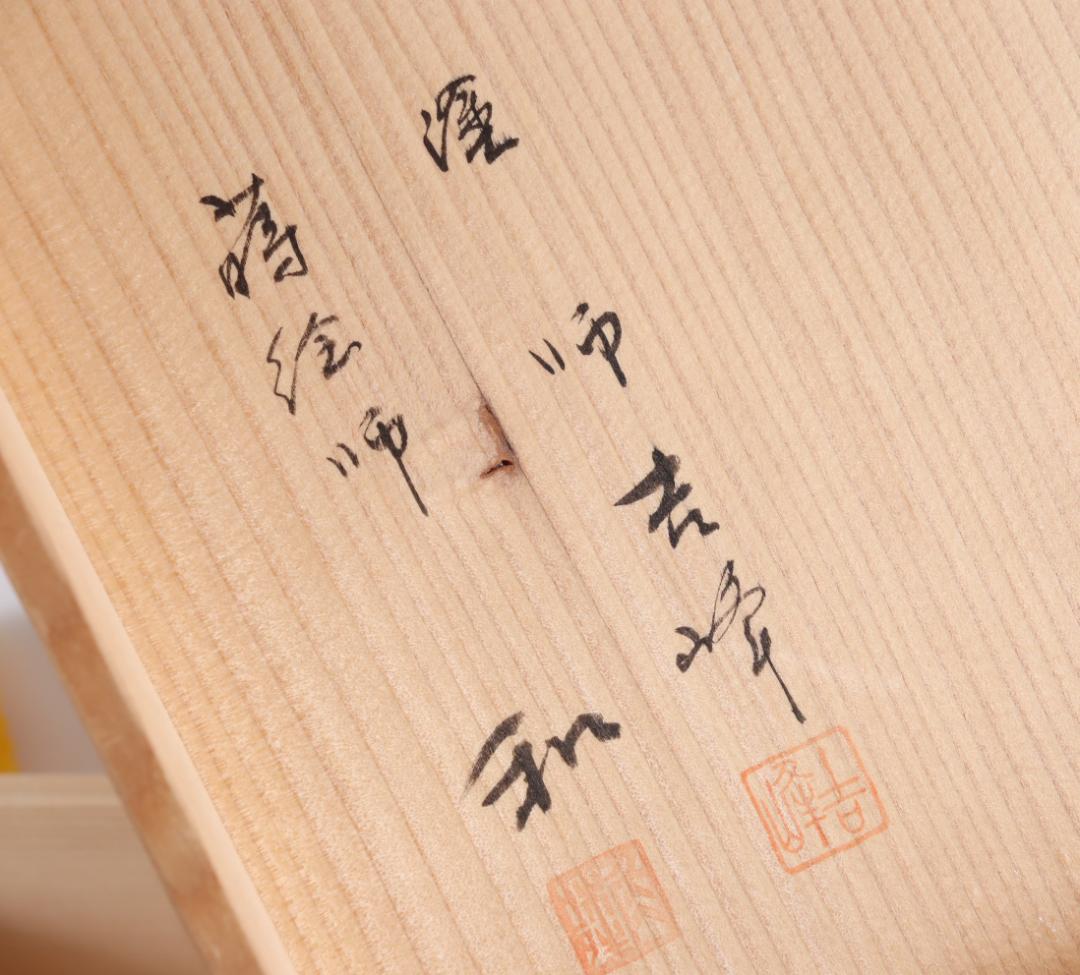 塗師 吉峰
吉峰
蒔絵師 和